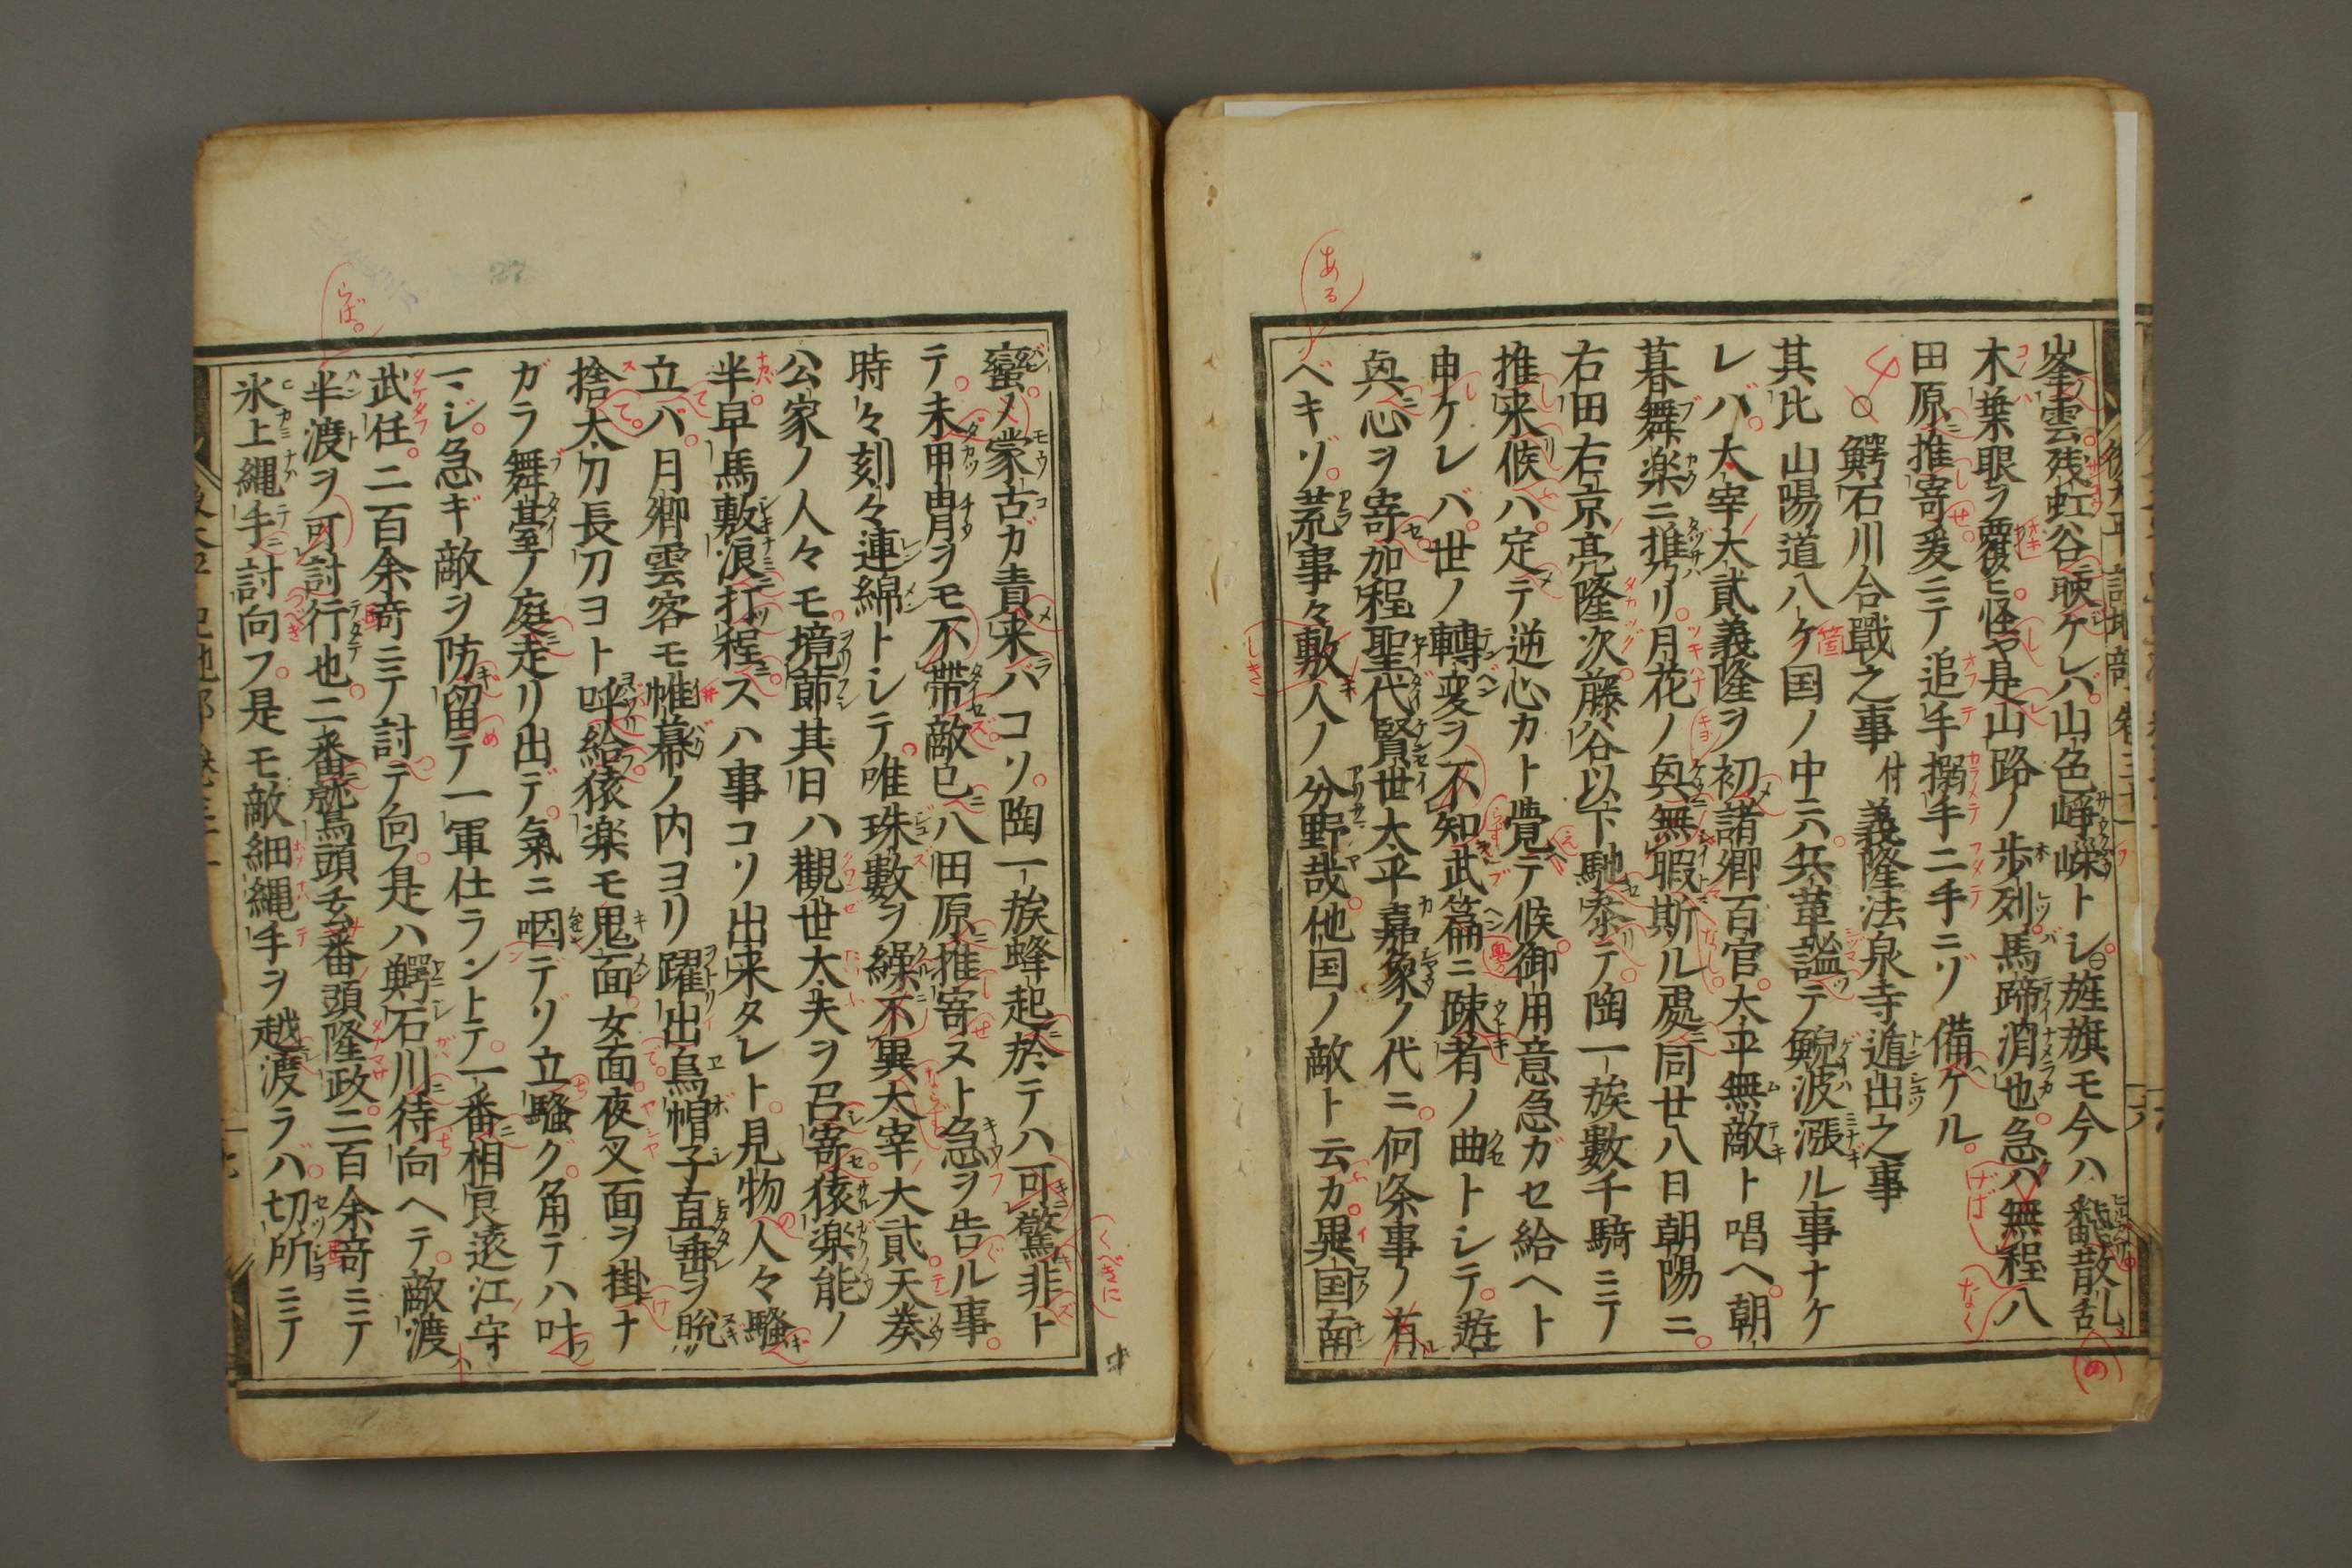 峯雲残虹谷映ケレバ山色崢嶸トシ旌旗モ今ハ飜散乱
木葉眼ヲ覆ヒ怪ヤ是山路ノ歩列馬蹄消也急バ無程八
田原推寄爰ニテ追手搦手二手ニゾ備ケル
○鰐石川合戰之事付義隆法泉寺遁出之事
其比山陽道八ケ国ノ中六兵革謐テ鯢波漲ル事ナケ
レバ大宰大貳義隆ヲ初諸卿百官大平無敵ト唱ヘ朝
暮舞楽ニ携リ月花ノ與無暇斯ル處同廿八日朝陽ニ
右田右京亮隆次藤谷以下馳参テ陶一族數千騎ニテ
推来候ハ定テ逆心カト覺テ候御用意急ガセ給ヘト
申ケレバ世ノ轉変ヲ不知武篇ニ疎者ノ曲トシテ遊
興心ヲ寄加程聖代賢世太平嘉象ノ代ニ何条事ノ有
ベキゾ荒事々敷人ノ分野哉他国ノ敵ト云カ異国南
蠻ノ蒙古ガ責来バコソ陶一族蜂起於テハ可驚非ト
テ未甲冑ヲモ不帶敵已八田原推寄ヌト急ヲ告ル事
時々刻々連綿トシテ唯珠數ヲ繰不異大宰大貳天奏
公家ノ人々モ境節其日ハ觀世大夫ヲ召寄猿楽能ノ
半早馬敷浪打程スハ事コソ出来タレト見物人々騒
立バ月卿雲客モ帷幕ノ内ヨリ躍出烏帽子直垂ヲ脱
捨太刀長刀ヨト呼給猿楽モ鬼面女面夜叉面ヲ掛ナ
ガラ舞臺ノ庭走リ出デ氣ニ咽デゾ立騒グ角テハ叶
マジ急ギ敵ヲ防留テ一軍仕ラントテ一番相良遠江守
武任二百余騎ニテ討テ向フ是ハ鰐石川待向ヘテ敵渡
半渡ヲ可討行也二番鷲頭 番頭隆政二百余騎ニテ
氷上縄手討向フ是モ敵細縄手ヲ越渡ラバ切所ニテ